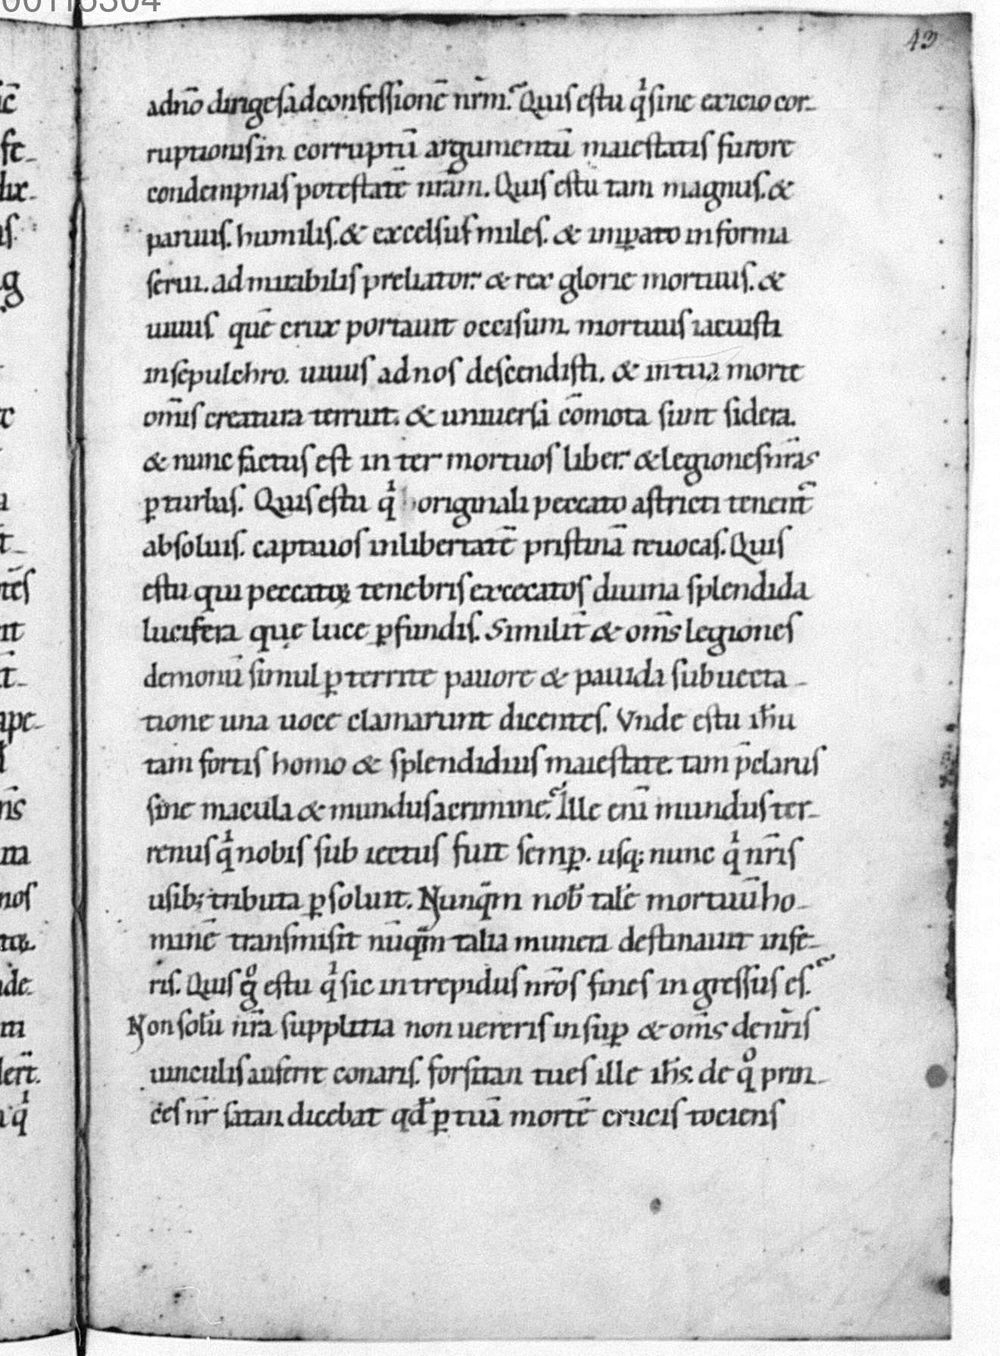 00115304
43
adnō dirigesadconfessionē nr̄m. Quis estu qͥ sine exicio cor-
ruptionis in corruptū argumentū maiestatis furore
condempnas potestatē nrām. Quis estu tam magnus. &
paruus. humilis. & excelsus miles. & imꝑator informa
serui. ad mirabilis preliator. & rex glorie mortuus. &
uiuus quē crux portauit occisum. mortuus iacuisti
insepulchro. uiuus ad nos descendisti. & in tua morte
om̄is creatura terruit. & uniuersa cōmota sunt sidera.
& nunc factus est in ter mortuos liber. & legiones nr̄as
ꝑ turbas. Quis estu qͥ originali peccato astricti tenent̄
absoluis. captiuos inlibertatē pristinā reuocas. Quis
estu qui peccatoꝝ tenebris excecatos diuina splendida
lucifera quę luce ꝑfundis. Similit̄ & om̄s legiones
demonū simul ꝑ territe pauore & pauida subuecta-
tione una uoce clamarunt dicentes. Vnde estu ih̄u
tam fortis homo & splendidius maiestate. tam p̄clarus
sine macula & mundus acrimine. Ille eni mundus ter-
renus qͥ nobis sub iectus fuit semꝑ. usq; nunc qͥ nr̄is
usib; tributa ꝑ soluit. Nunq̄m nob̄ talē mortuū ho-
minē transmisit nūq̄m talia munera destinauit infe-
ris. Quis gͦ estu qͥ sic intrepidus nr̄os fines in gressus es.
Non solū nr̄a supplitia non uereris in suꝑ & om̄s denr̄is
uinculis auferre conaris. forsitan tues ille ih̄s. de qͦ prin-
ceps nr̄ satan dicebat qd̄ ꝑ tuā mortē crucis tociens